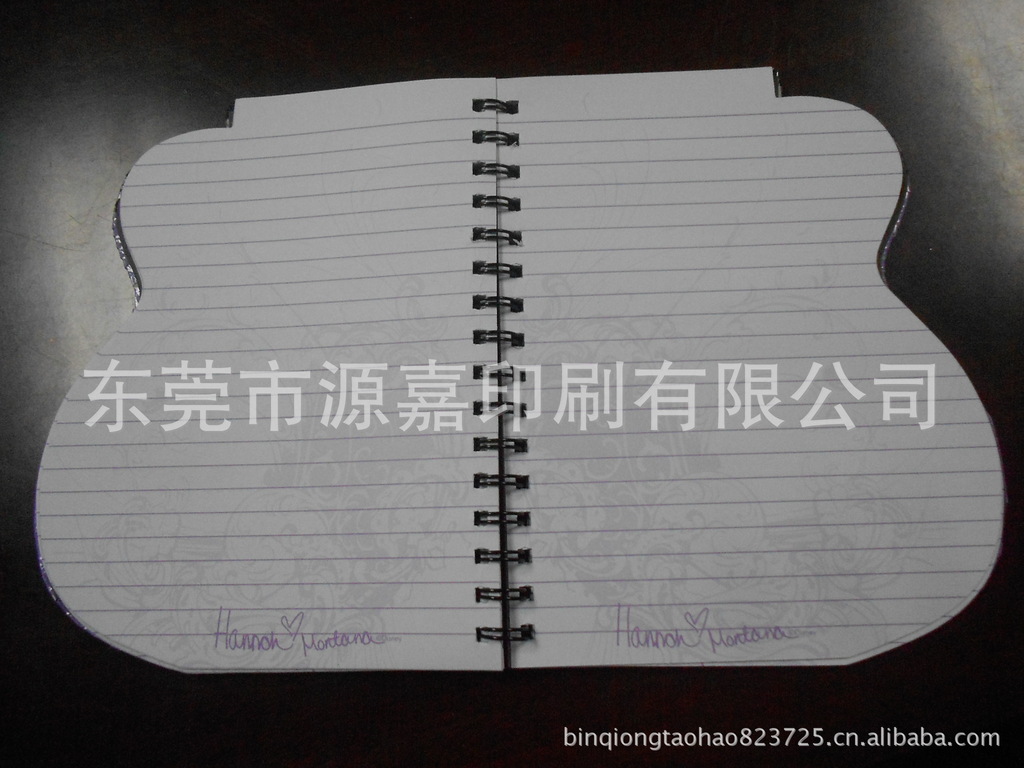 东莞市源嘉印刷有限公司
Hannah Montana Hannah Montana
binqiongtaohao823725.cn.alibaba.com